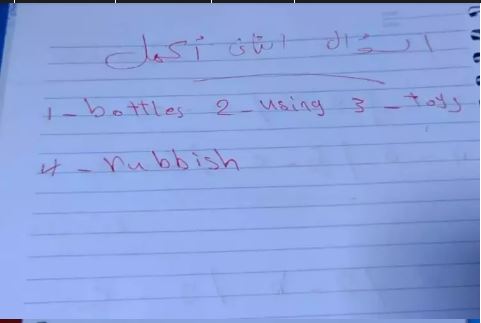 السؤال الثاني أكمل
1- bottles 2- using 3- toys
4- rubbish